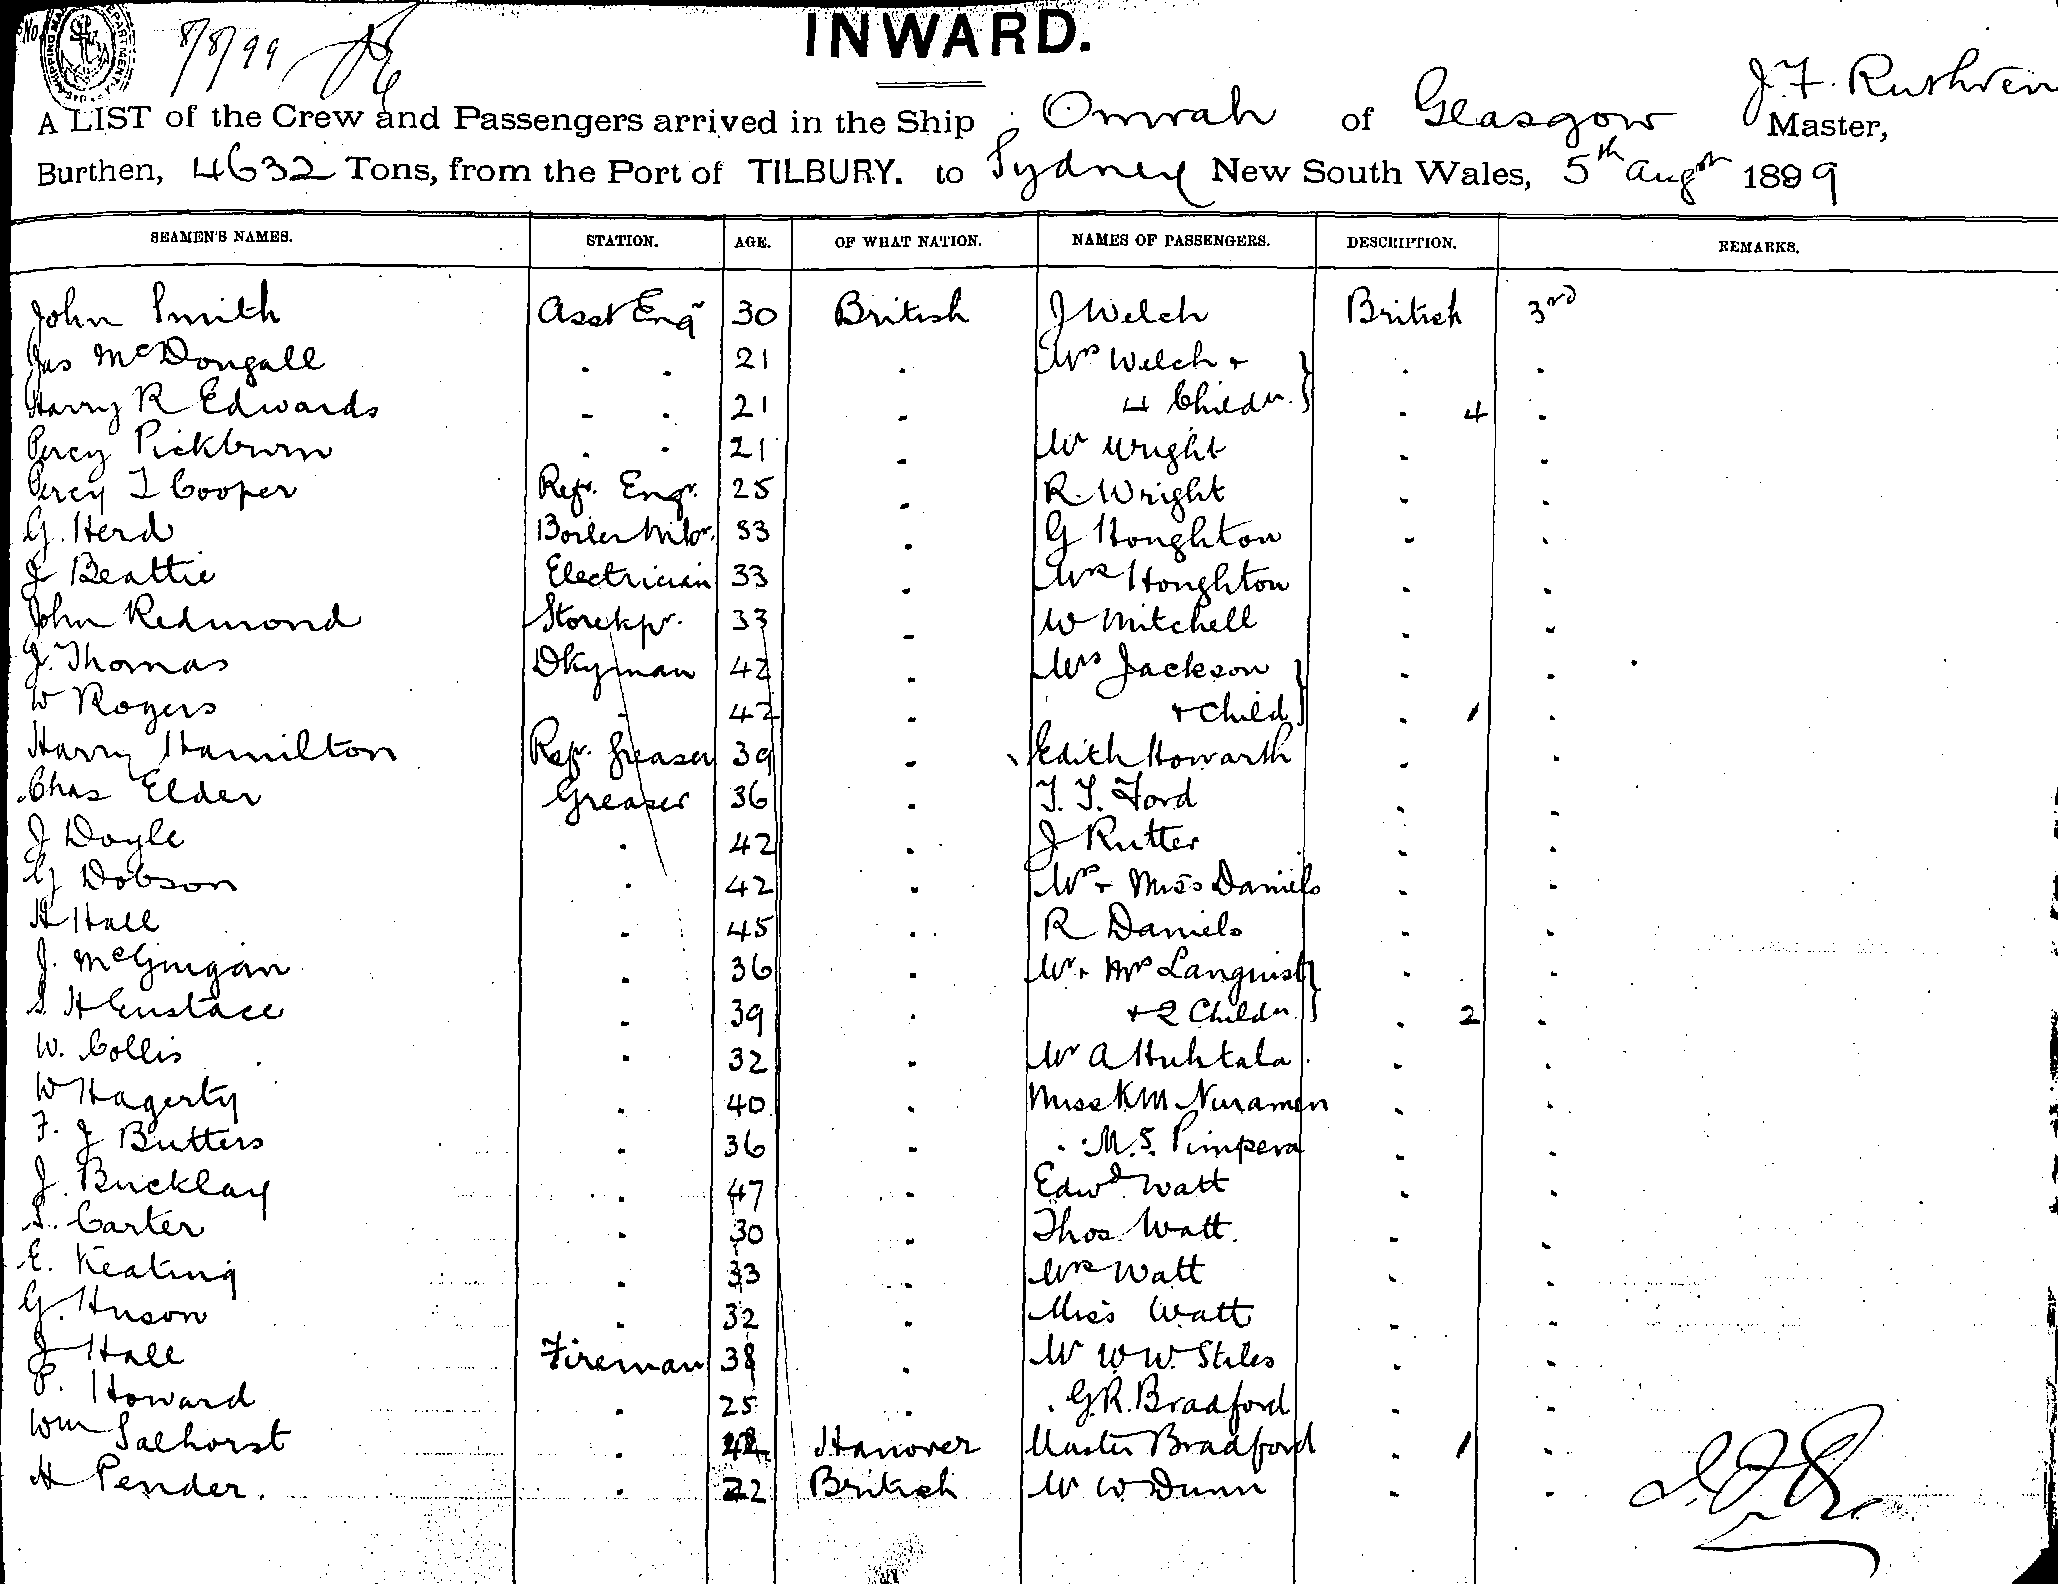 8/8/99
INWARD.
J. F. Ruthven
A LIST of the Crew and Passengers arrived in the Ship Omrah of Glasgow Master,
Burthen, 4632 Tons, from the Port of TILBURY. to Sydney New South Wales, 5th Augst 1899
SEAMEN'S NAMES. STATION. AGE. OF WHAT NATION. NAMES OF PASSENGERS. DESCRIPTION. REMARKS.
John Smith Asst Engr 30 British J Welch British 3rd
Jas McDougall . . 21 . Mrs Welch + . .
Harry R Edwards - . 21 . 4 Childn. . 4 .
Percy Pickburn . . 21 . Mr Wright . .
Percy I Cooper Refr. Engr. 25 . R. Wright . .
G. Herd Boiler Mkr. 33 . G Houghton . .
J Beattie Electrician 33 . Mrs Houghton . .
John Redmond Storekpr. 33 . W Mitchell . .
J. Thomas Dkyman 42 . Mrs Jackson . .
W Rogers . 42 . + Child . 1 .
Harry Hamilton Refr. Greaser 39 . Edith Howarth . .
Chas Elder Greaser 36 . T. T. Ford . .
J Doyle . 42 . J Rutter . .
G Dobson . 42 . Mrs + Miss Daniels . .
H Hall . 45 . R Daniels . .
J. McGuigan . 36 . Mr + Mrs Languist . .
S H Eustace . 39 . + 2 Childn . 2 .
W. Collis . 32 . Mr A Huhtala . .
W Hagerty . 40 . Miss K M Nuramen . .
F. J Butters . 36 . . M. S. Pimpera . .
J. Bucklay . 47 . Edwd. Watt . .
S. Carter . 30 . Thos. Watt . .
E. Keating . 33 . Mrs Watt . .
G. Huson . 32 . Miss Watt . .
J Hall Fireman 38 . Mr W W. Stiles . .
P. Howard . 25 . . G. R. Bradford . .
Wm Salhorst . Hanover Master Bradford . 1 .
H Pender. . 22 British Mr W Dunn . .